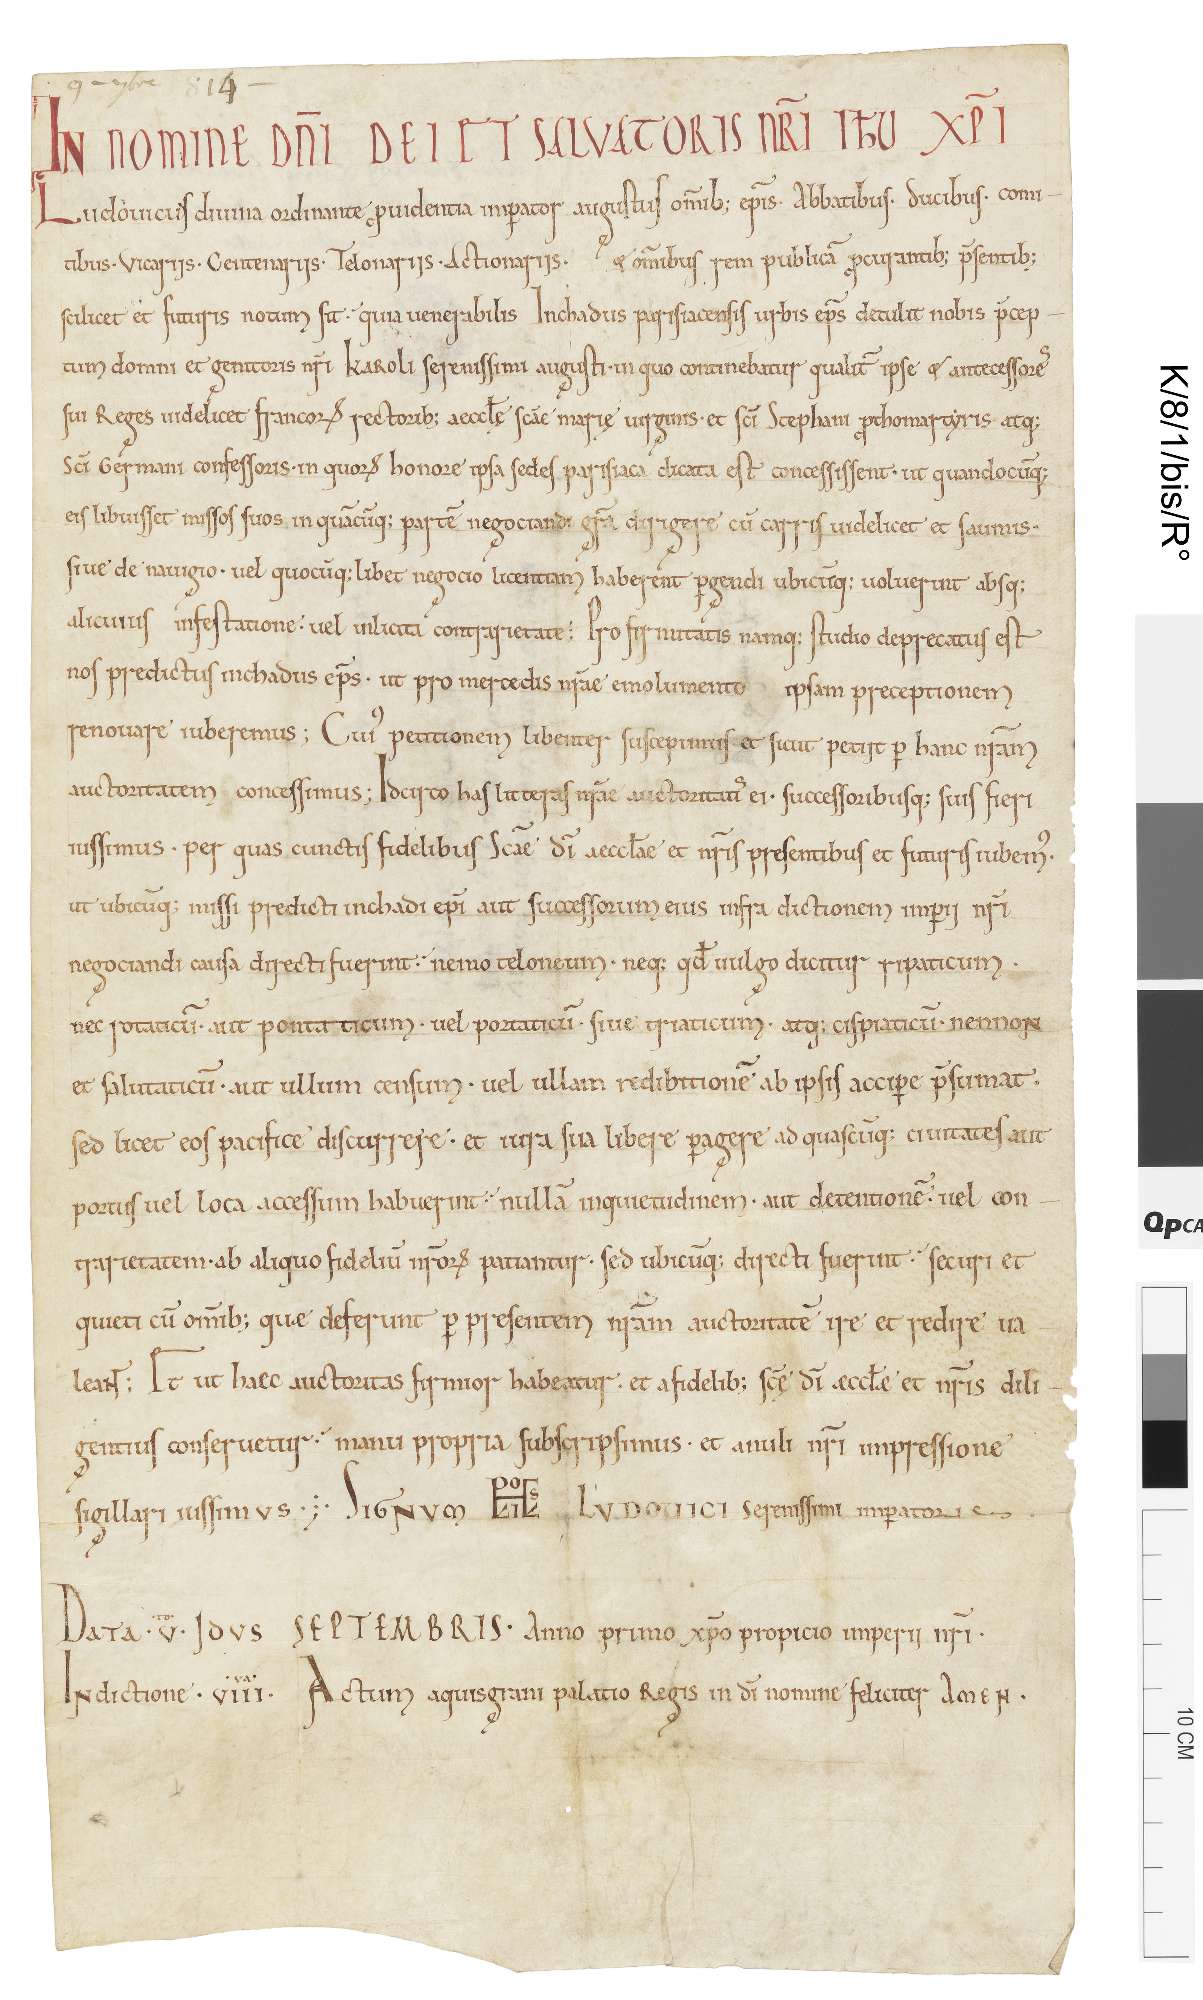 814 —
IN NOMINE DNI DEI ET SALVATORIS NRI IHU XPI
Ludouuicus diuina ordinante puidentia imperator augustus omib; epis. Abbatibus. Ducibus. comi-
tibus. Vicariis. Centenariis. Telonariis. Actionariis. & omibus rem publicā pcurantib; psentib;
scilicet et futuris notum sit. quia uenerabilis Inchadus parisiacensis urbis eps detulit nobis pcep-
tum domni et genitoris nri KAROLI serenissimi augusti. in quo continebatur qualit ipse & antecessores
sui Reges uidelicet francoꝝ rectorib; aecclę scāe marię uirginis. et sci Stephani pthomartyris. atq;
Sci Germani confessoris. in quoꝝ honore ipsa sedes parisiaca dicata est concessissent. ut quandocūq;
eis libuisset missos suos in quācūq; partē negociandi grā dirigere cū carris uidelicet et saumis.
siue de nauigio. uel quocūq; libet negocio licentiam haberent pgendi ubicūq; uoluerint absq;
alicuius infestatione. uel inlicita contrarietate; Pro firmitatis namq; studio deprecatus est
nos predictus inchadus eps. ut pro mercedis nrae emolumento ipsam preceptionem
renouare iuberemus; Cuiꝰ petitionem libenter suscepimus et sicut petiit p hanc nrām
auctoritatem concessimus; Idcirco has litteras nrāe auctoritatis ei. successoribusq; suis fieri
iussimus. per quas cunctis fidelibus Scāe dī aecclae et nris presentibus et futuris iubemꝰ.
ut ubicūq; missi predicti inchadi epi aut successorum eius infra dictionem imperii nri
negociandi causa directi fuerint. nemo teloneum. neq; qđ uulgo dicitur ripaticum.
nec rotaticū. aut pontaticum. uel portaticū. siue traticum. atq; cispiaticū. necnon
et salutaticū. aut ullum censum. uel ullam redibitionē ab ipsis accipe psumat.
sed licet eos pacifice discurrere. et iura sua libere pagere ad quascūq; ciuitates aut
portus uel loca accessum habuerint. nullā inquietudinem. aut detentionē. uel con-
trarietatem. ab aliquo fideliū nroꝝ patiantur. sed ubicūq; directi fuerint. securi et
quieti cū omib; que deferunt p presentem nrām auctoritatē ire et redire ua-
leant; Et ut haec auctoritas firmior habeatur. et a fidelib; scę dī aecclae et nris dili-
gentius conseruetur. manu propria subscripsimus. et anuli nri impressione
sigillari iussimus. Signum LUDOUICI serenissimi imperatoris
Data. v.to Idus SEPTEMBRIS. Anno primo xpo propicio imperii nri.
Indictione. viii.va Actum aquisgrani palatio Regis in dī nomine feliciter AMEN.
K/8/1/bis/R°
QPCA
10 CM